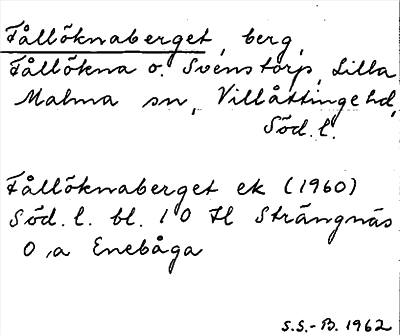 Fållöknaberget, berg,
Fållökna o. Svenstorp, Lilla
Malma sn, Villåttinge hd,
Söd. l.
Fållöknaberget ek (1960)
Söd. l. bl. 10 Strängnäs
0,a Enebåga
S.S.-B. 1962